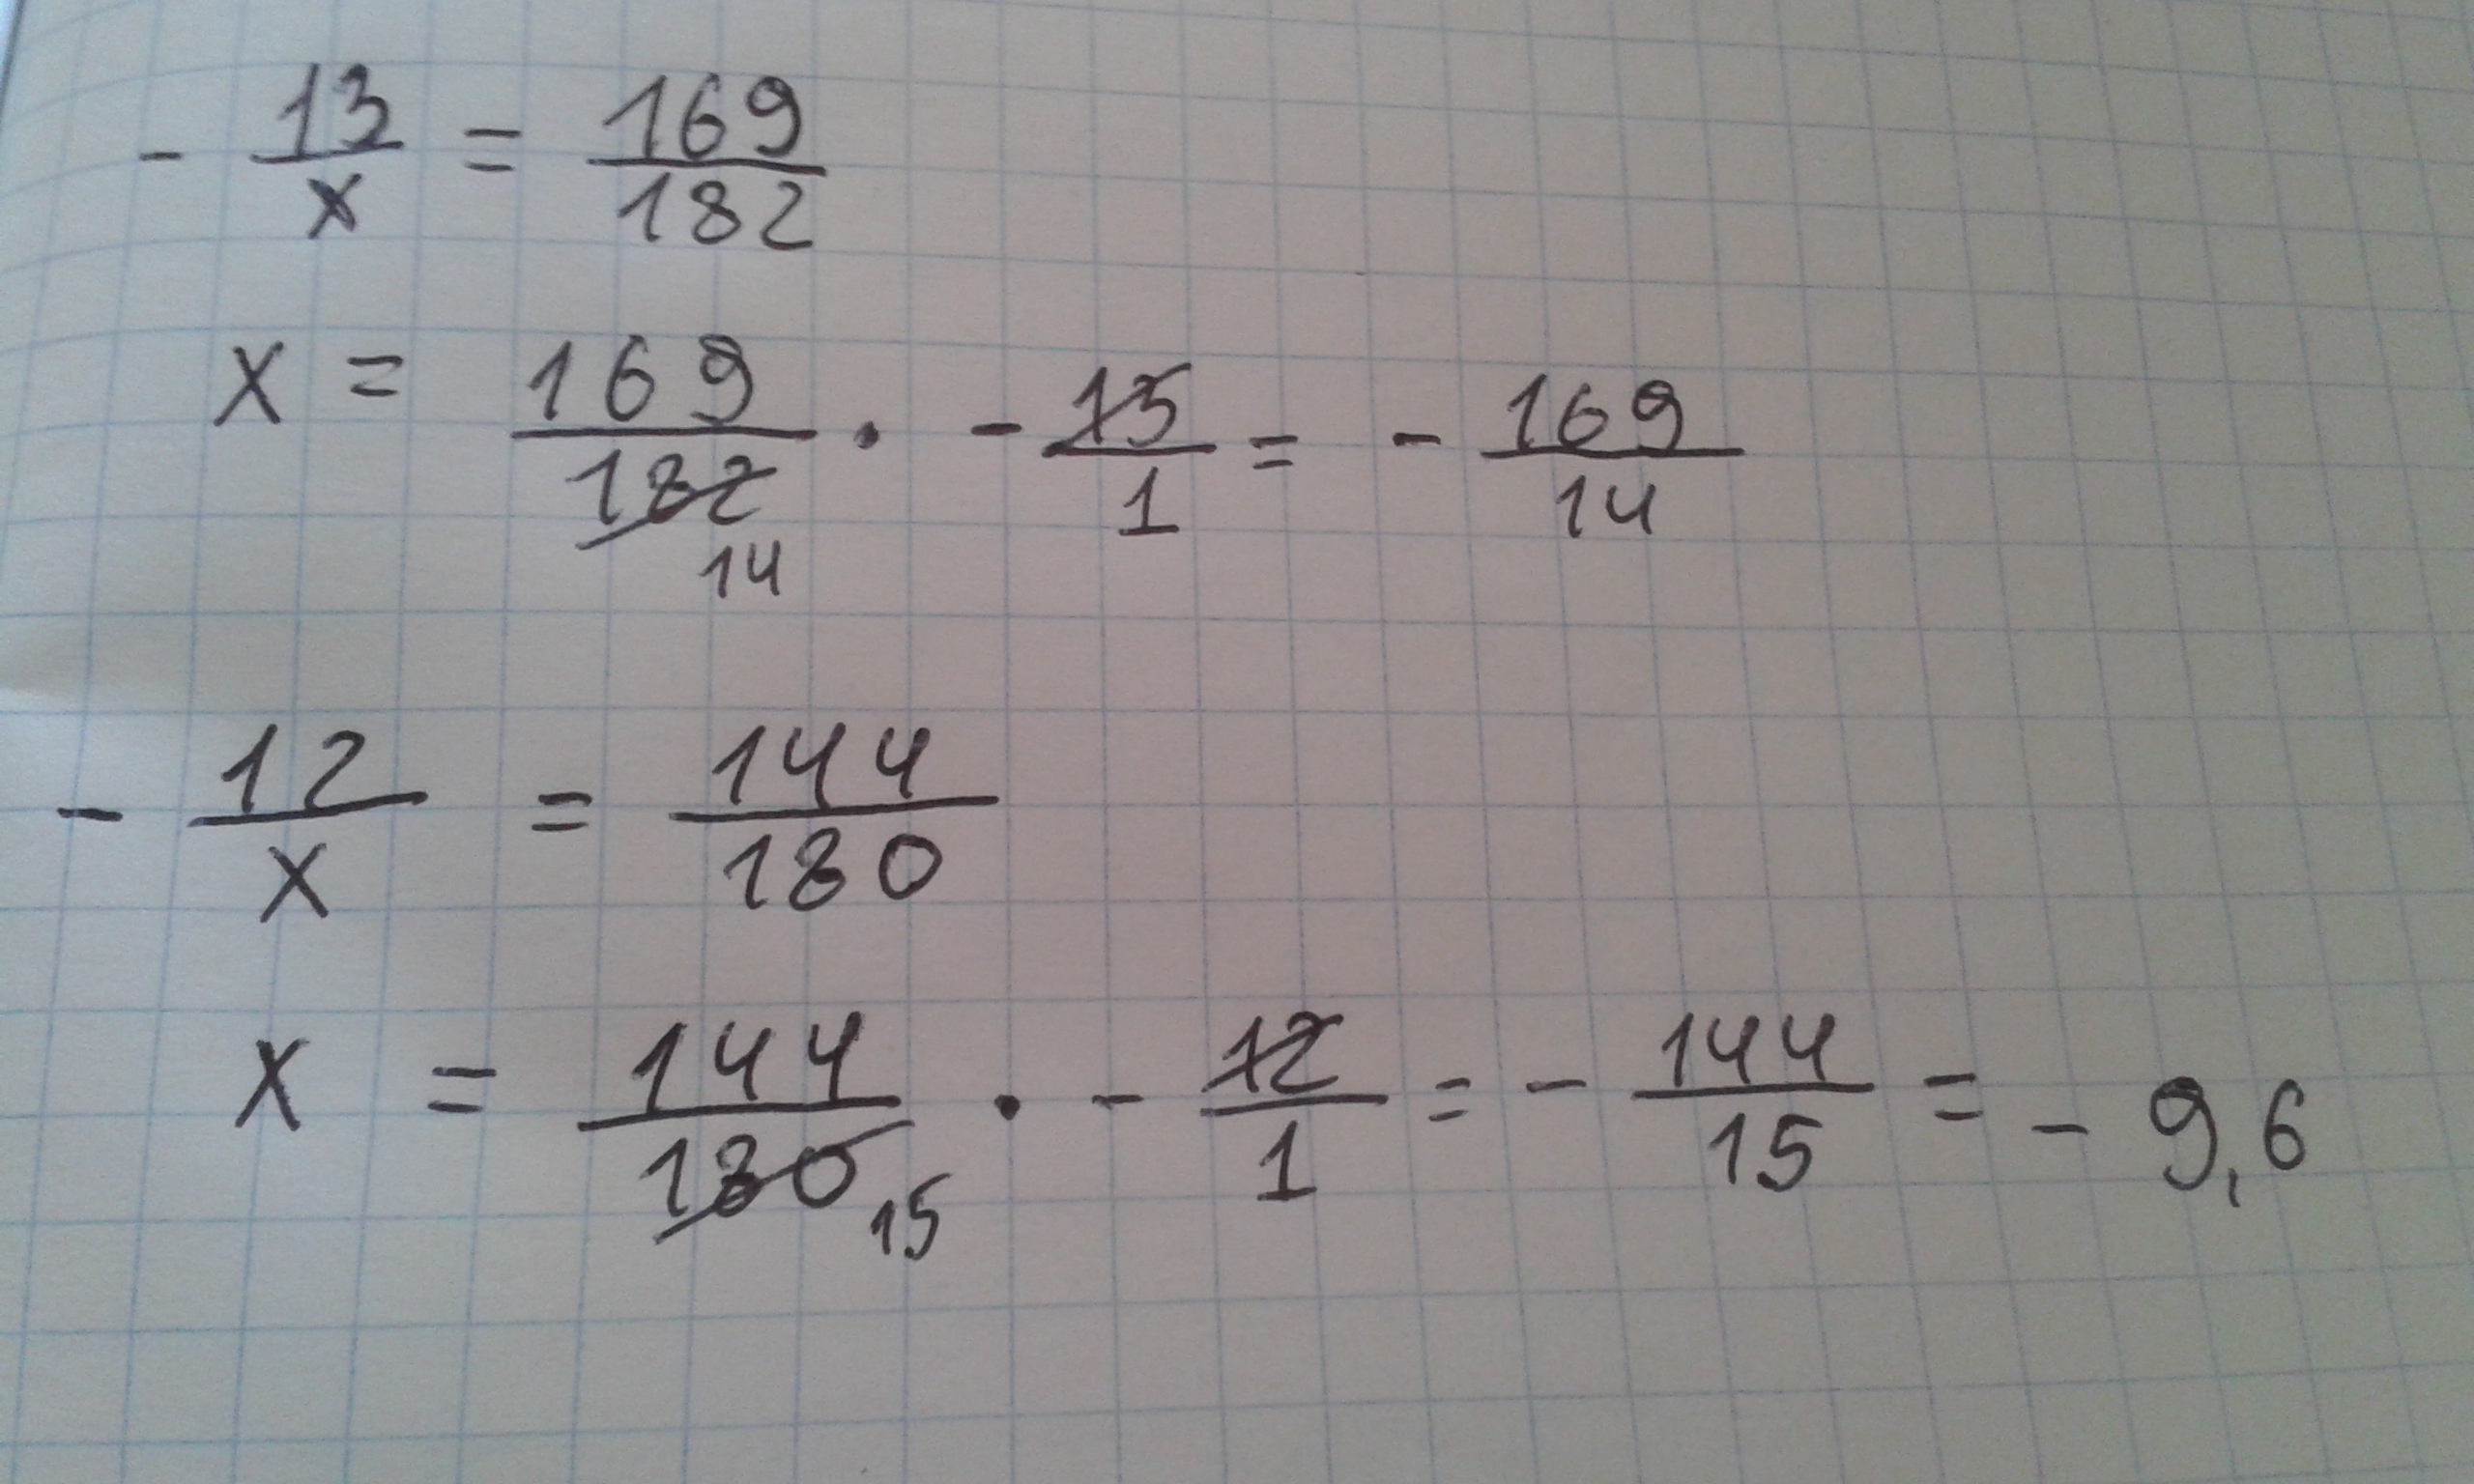 - 13/x = 169/182
x = 169/182 14 · - 13/1 = - 169/14
- 12/x = 144/180
x = 144/180 15 · - 12/1 = - 144/15 = - 9,6